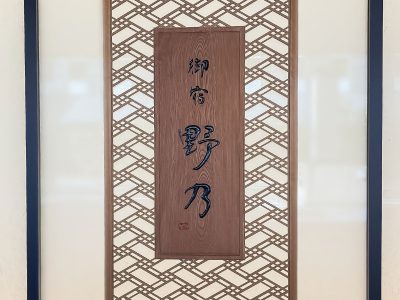 御宿
野乃